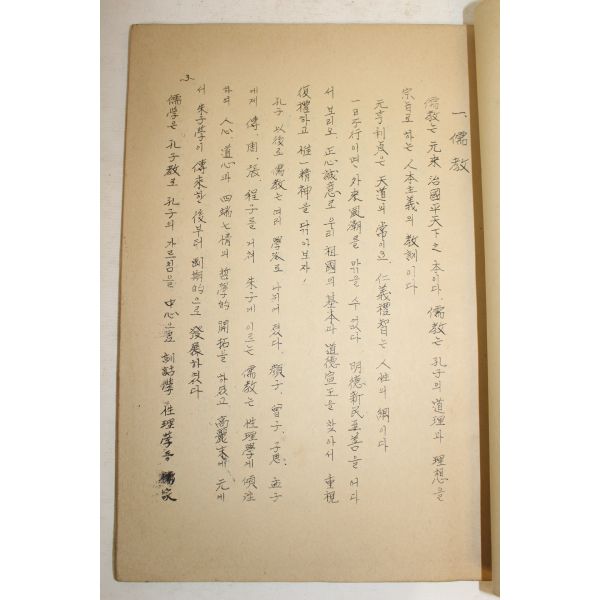 一. 儒教
儒教는 元來 治國平天下之本이다. 儒教는 孔子의 道理과 理想을
宗旨로 하는 人本主義의 教訓이다
元亨利貞은 天道의 常이으 仁義禮智는 人性의 綱이다
一日行이면 外來風潮를 막을 수 있다 明德新民至善을 어다
서 보리오. 正心誠意로 우리 祖國의 基本과 道德宣王을 찾아서 重視
復禮하고 惟一精神을 닦아보자!
孔子 以後로 儒教는 여러 學派로 나뉘어졌다. 顔子. 曾子. 子思. 孟子
에게 傳. 周. 張. 程子를 거쳐 朱子에 이르는 儒教는 性理學에 傾注
하여 人心. 道心과 四端七情의 哲學的 開拓을 하였고 高麗末에 元에
서 朱子學이 傳來한 後부터 劃期的으로 發展하였다
儒學은 孔子教로 孔子의 가르침을 中心으로 訓詁學 性理學 等 儒家
3.